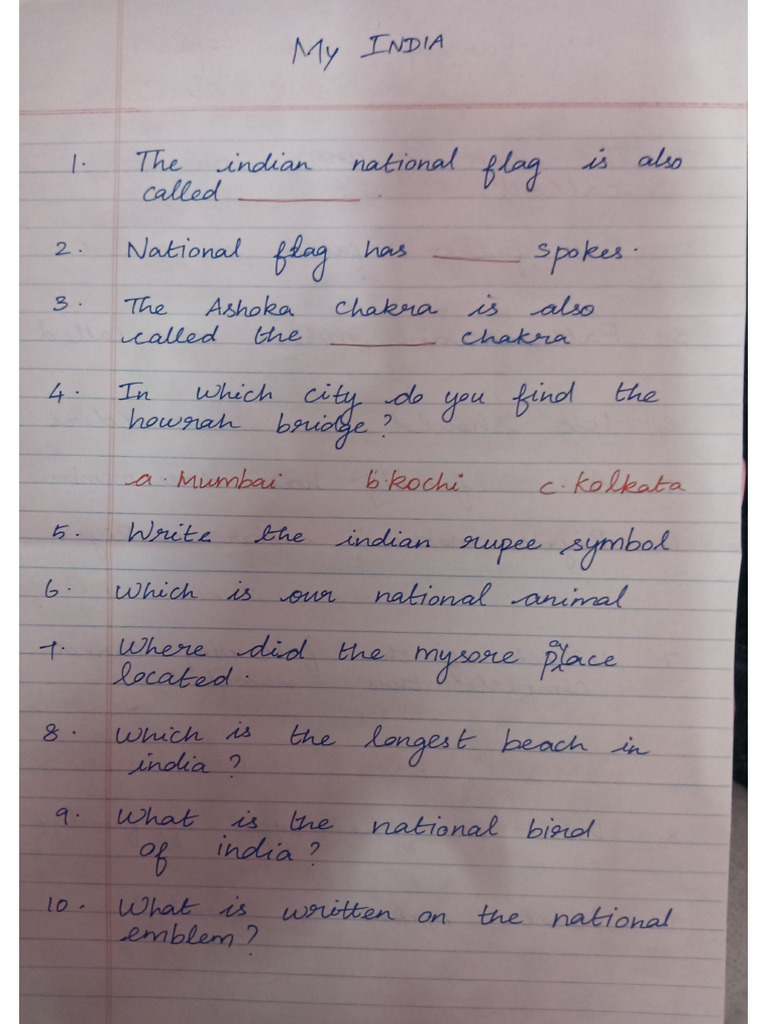 My INDIA
1. The indian national flag is also
called ________.
2. National flag has ______ spokes.
3. The Ashoka chakra is also
called the _______ chakra
4. In which city do you find the
howrah bridge?
a. Mumbai b. kochi c. Kolkata
5. Write the indian rupee symbol
6. Which is our national animal
7. Where did the mysore palace
located.
8. Which is the longest beach in
india?
9. What is the national bird
of india?
10. What is written on the national
emblem?